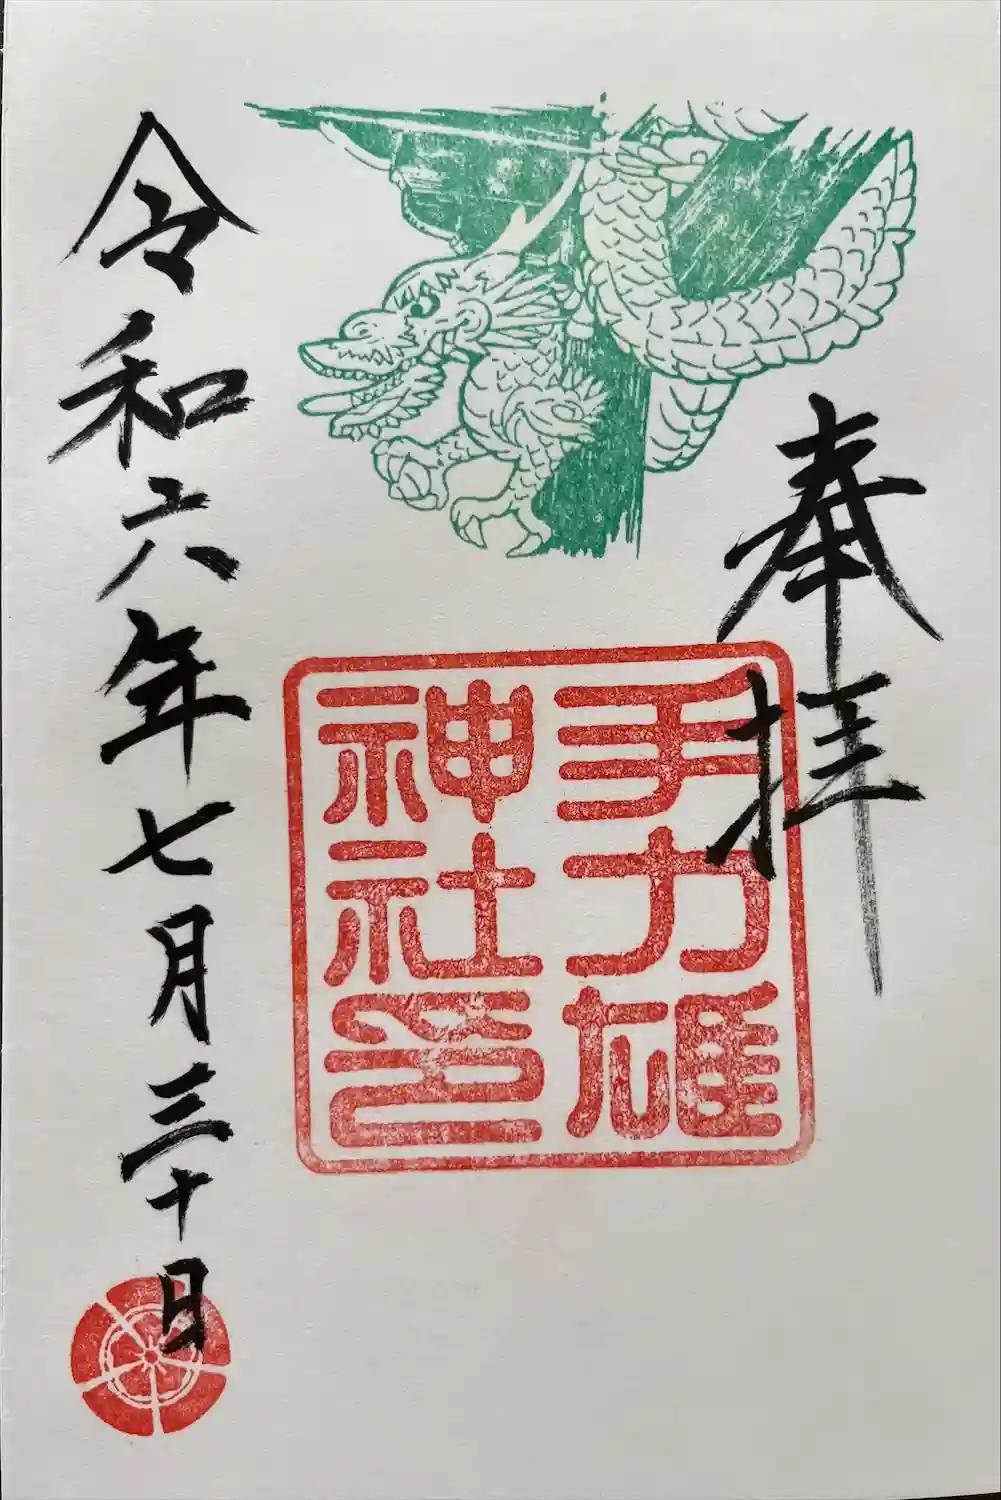 奉拝
手力雄
神社印
令和六年七月三十日